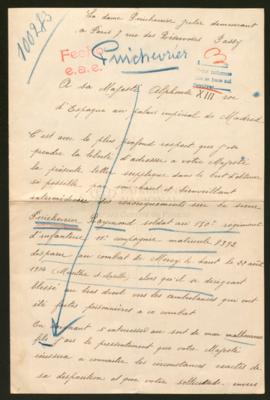 100283
La dame Puichevrier julie demeurant
à Paris 7 rue des Réservoirs Passy
Fecho
e.a.e.
Puichevrier
XIII
A sa Majesté Alphonse roi
d'Espagne au palais impérial de Madrid
C'est avec le plus profond respect que j'ose
prendre la liberté d'adresser à votre Majesté
la présente lettre supplique dans le but d'obtenir
si possible, par son haut et bienveillant
des renseignements sur le sieur
Puichevrier Raymond soldat au régiment
d'infanterie, compagnie matricule
disparu au combat de Mercy le haut le 22 août
1914 (Meurthe et Moselle) alors qu'il se dirigeait
blessé au bras droit vers les ambulances qui ont
été faites prisonnières à ce combat.
En s'intéresser au sort de mon malheureux
fils j'ai le pressentiment que votre Majesté
réussira à connaître les circonstances exactes de
sa disparition et que votre sollicitude envers